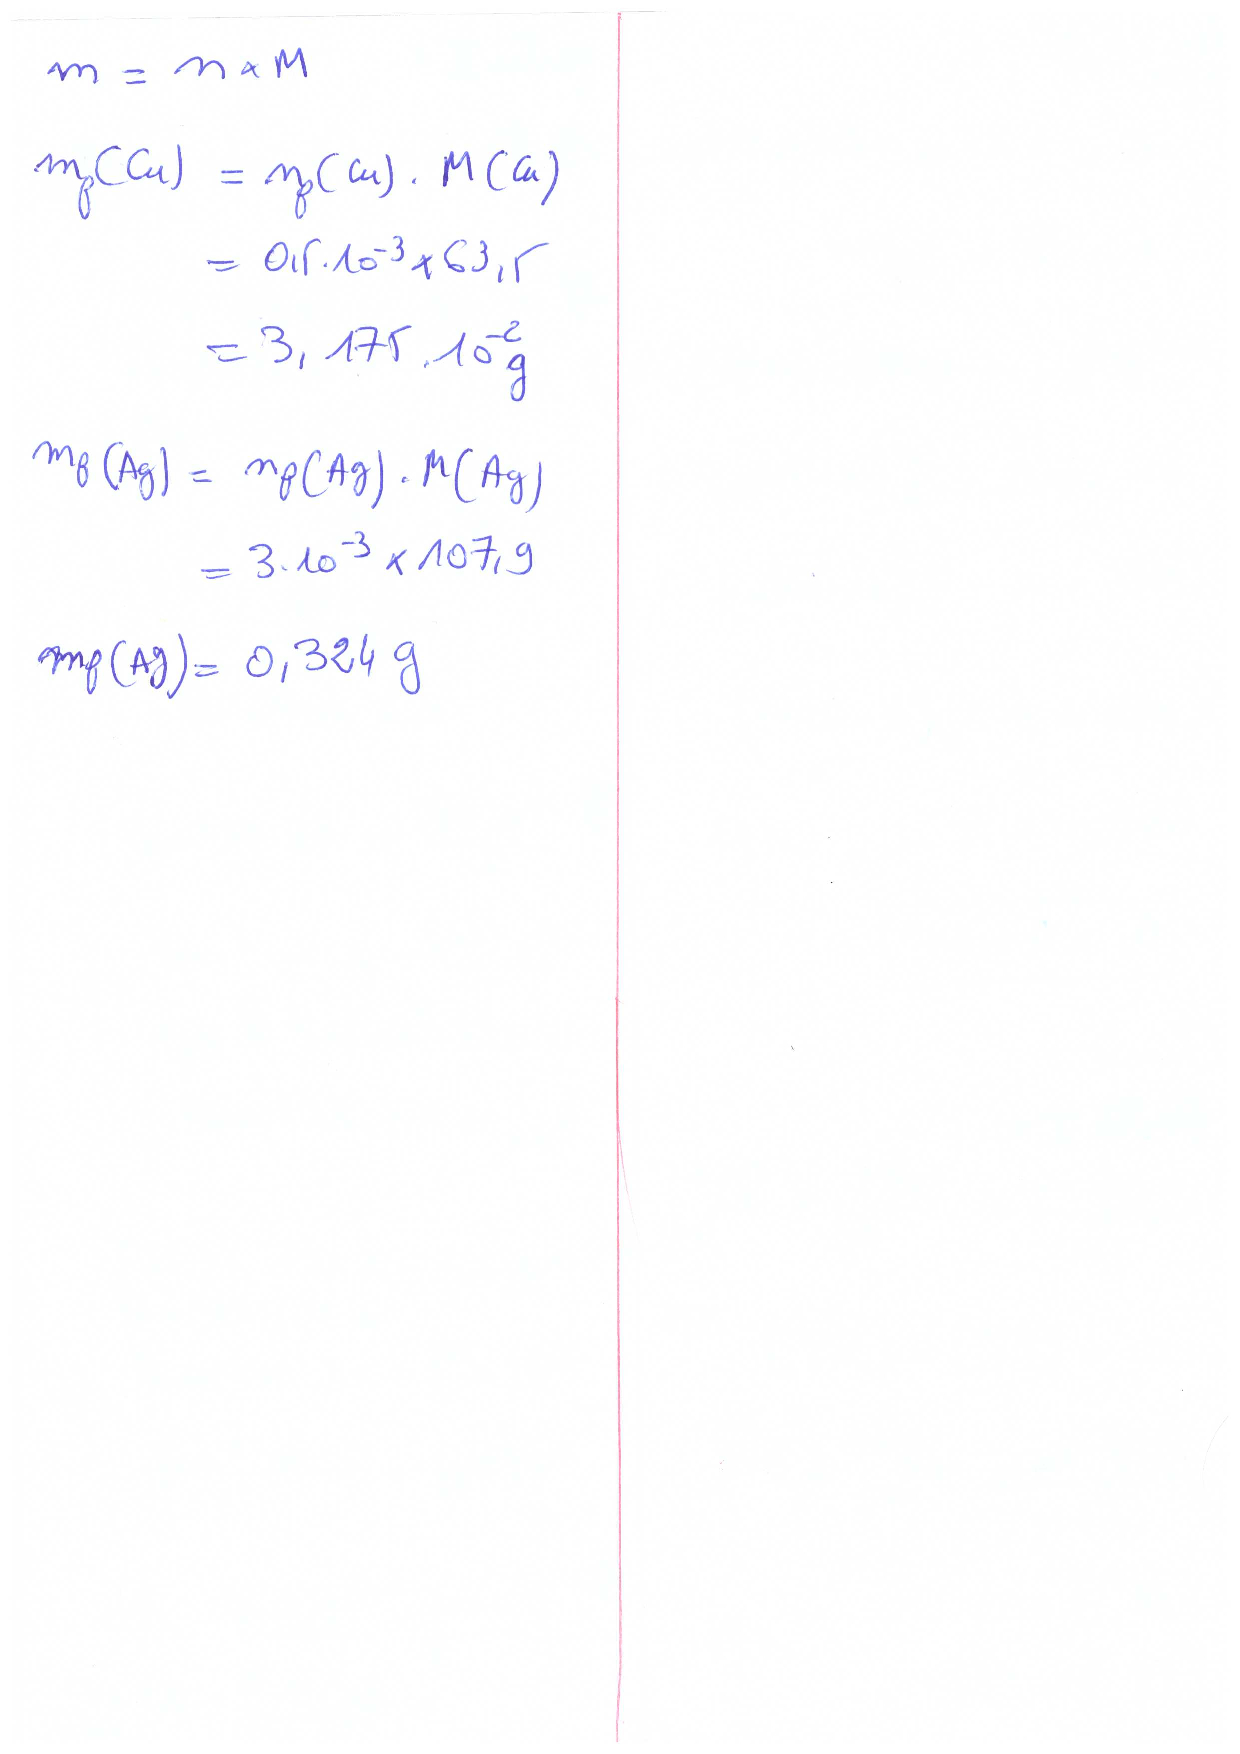 m = n × M
mf(Cu) = nf(Cu) . M(Cu)
= 0,5.10⁻³ × 63,5
= 3,175.10⁻² g
mf(Ag) = nf(Ag) . M(Ag)
= 3.10⁻³ × 107,9
mf(Ag) = 0,324 g